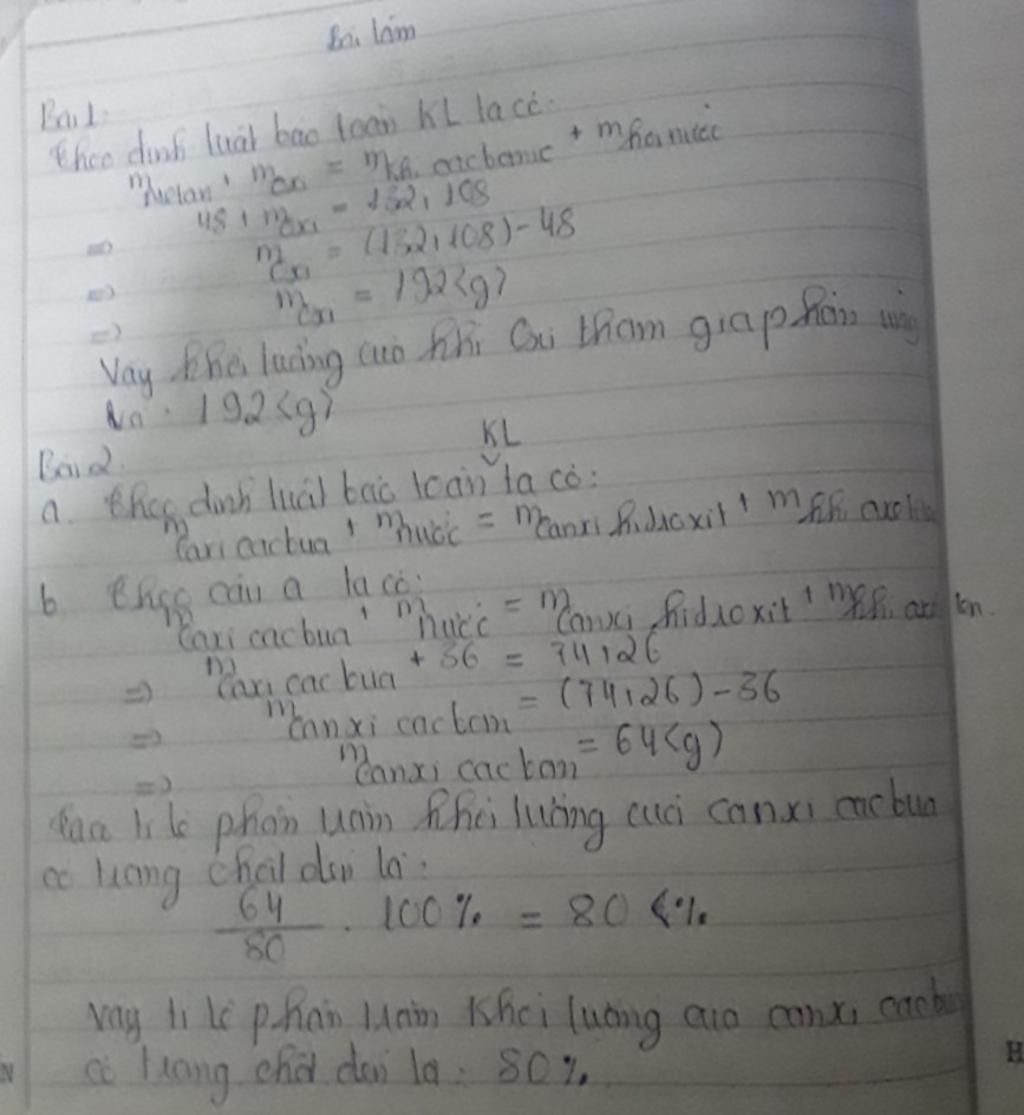 Bài làm
Bài 1:
Theo định luật bảo toàn KL ta có:
m metan + m oxi = m khí cacbonic + m hơi nước
=> 48 + m oxi = 132 + 108
=> m oxi = (132 + 108) - 48
=> m oxi = 192 (g)
Vậy khối lượng của khí Oxi tham gia phản ứng
là: 192 (g)
Bài 2.
KL
a. Theo định luật bảo toàn ta có:
m canxi cacbua + m nước = m canxi hiđroxit + m khí axetilen
b Theo câu a ta có:
m canxi cacbua + m nước = m canxi hiđroxit + m khí axetilen.
=> m canxi cacbua + 36 = 74 + 26
=> m canxi cacbon = (74 + 26) - 36
=> m canxi cacbon = 64 (g)
tỉ lệ phần trăm khối lượng của canxi cacbua
có trong chất đèn là:
64
80 . 100% = 80%
Vậy tỉ lệ phần trăm khối lượng của canxi cacbua
có trong chất đèn là: 80%.
N
H